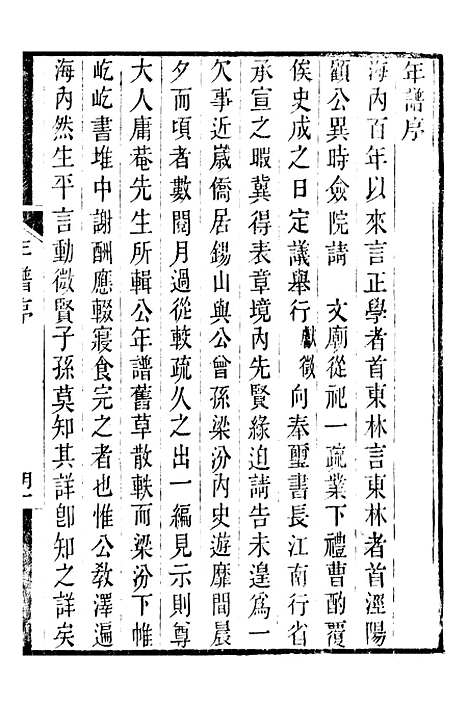 年譜序
海內百年以來言正學者首東林言東林者首涇陽
顧公異時僉院請　文廟從祀一疏業下禮曹酌覆
俟史成之日定議舉行獻徵向奉璽書長江南行省
承宣之暇冀得表章境內先賢緣迫請告未遑爲一
欠事近嵗僑居錫山與公曾孫梁汾內史遊靡間晨
夕而頃者數閱月過從較疏久之出一編見示則尊
大人庸菴先生所輯公年譜舊草散軼而梁汾下帷
屹屹書堆中謝酬應輟寢食完之者也惟公敎澤遍
海內然生平言動微賢子孫莫知其詳卽知之詳矣
年譜序